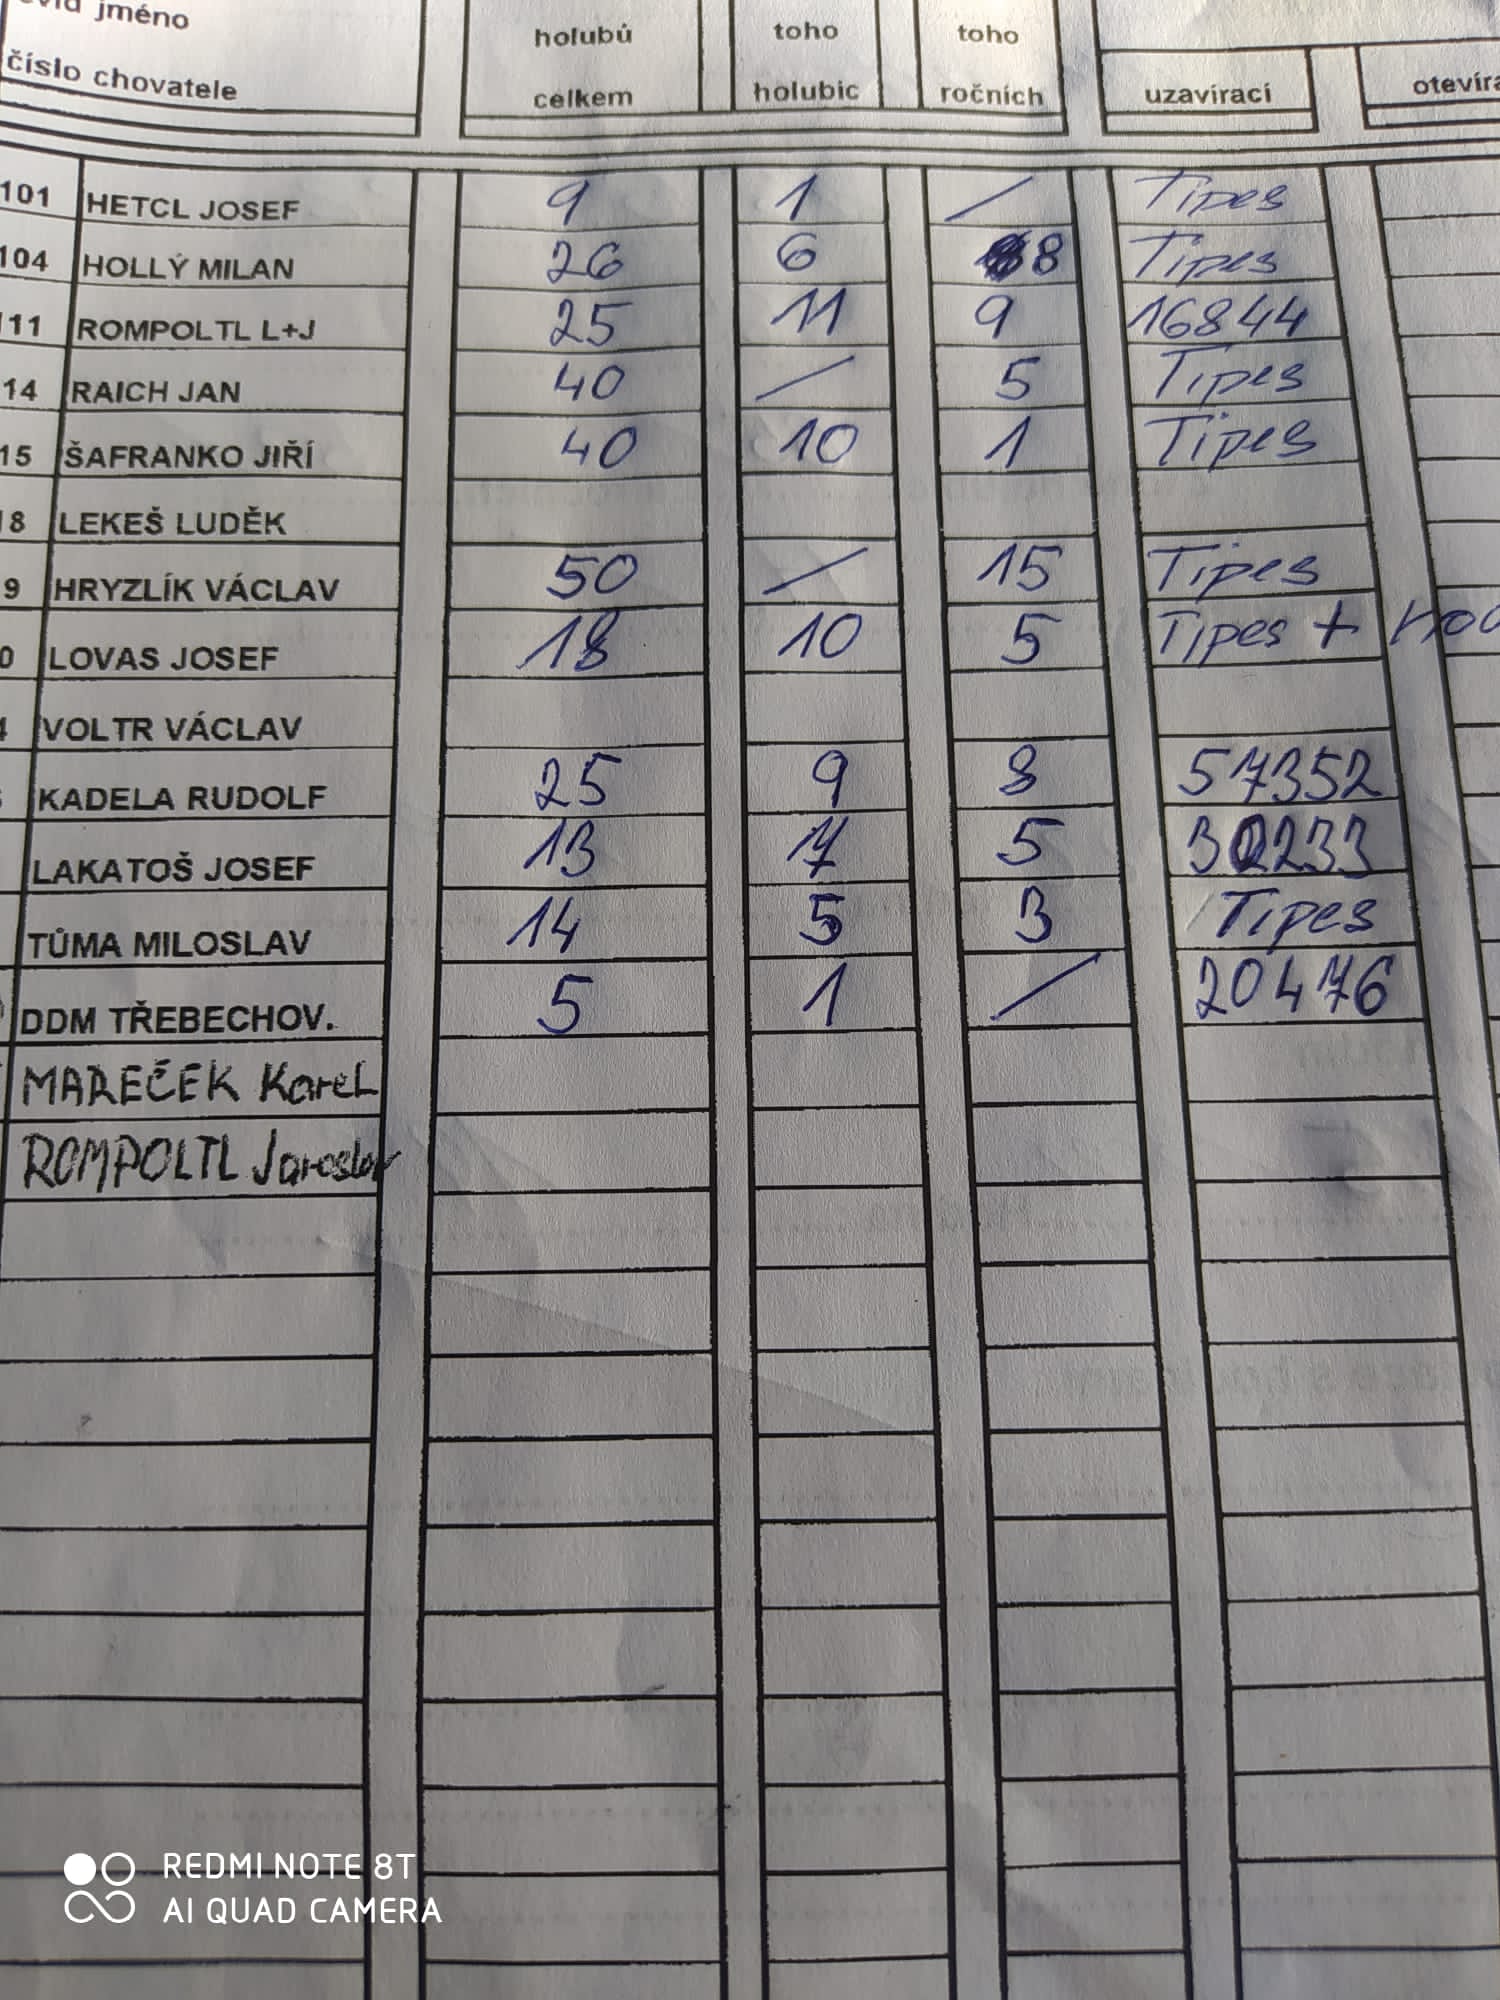 jméno
číslo chovatele
holubů celkem
toho holubic
toho ročních
uzavírací
101 HETCL JOSEF 9 1 / Tipes
104 HOLLÝ MILAN 26 6 8 Tipes
111 ROMPOLTL L+J 25 11 9 16844
14 RAICH JAN 40 / 5 Tipes
15 ŠAFRANKO JIŘÍ 40 10 1 Tipes
8 LEKEŠ LUDĚK
9 HRYZLÍK VÁCLAV 50 / 15 Tipes
0 LOVAS JOSEF 18 10 5 Tipes +
VOLTR VÁCLAV
KADELA RUDOLF 25 9 8 57352
LAKATOŠ JOSEF 13 7 5 30233
TŮMA MILOSLAV 14 5 3 Tipes
DDM TŘEBECHOV. 5 1 / 20476
MAREČEK Karel
ROMPOLTL Jaroslav
REDMI NOTE 8T
AI QUAD CAMERA